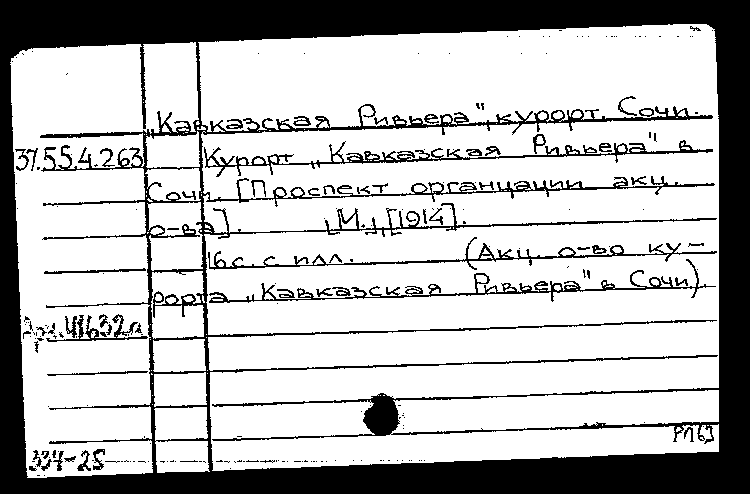 „Кавказская Ривьера", курорт. Сочи.
37.55.4.263 Курорт „Кавказская Ривьера" в
Сочи. [Проспект организации акц.
о-ва]. [М.], [1914].
16 с. с илл. (Акц. о-во ку-
рорта „Кавказская Ривьера" в Сочи).
41632а
334-25